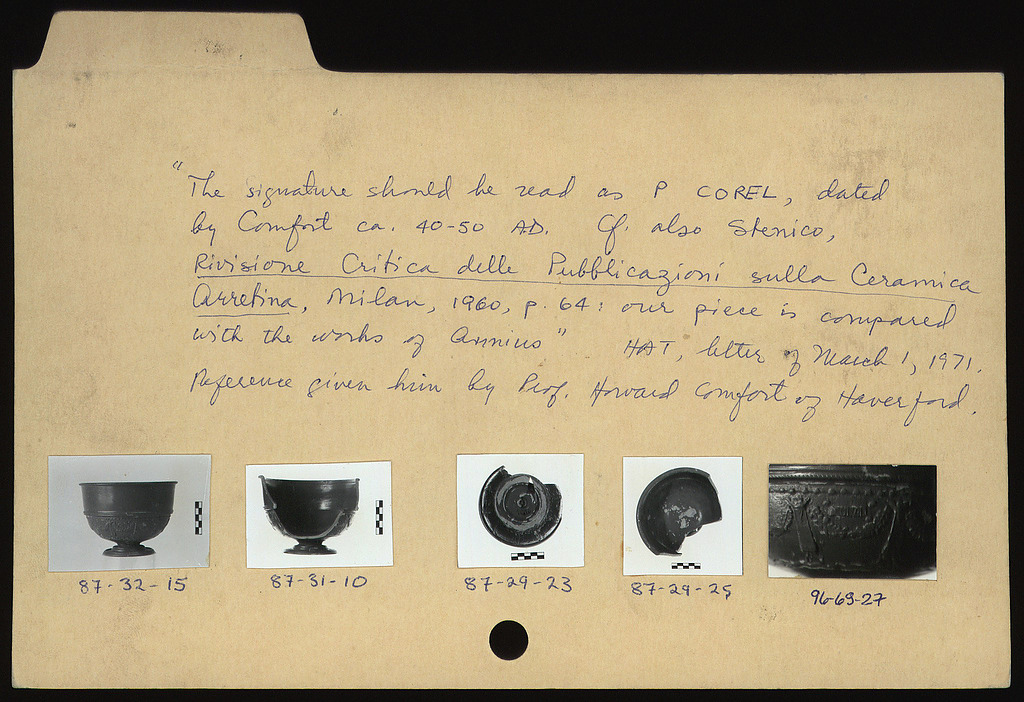 "The signature should be read as P COREL, dated
by Comfort ca. 40-50 AD. Cf. also Stenico,
Rivisione Critica delle Pubblicazioni sulla Ceramica
Arretina, Milan, 1960, p. 64: our piece is compared
with the works of Annius" HAT, letter of March 1, 1971.
Reference given him by Prof. Howard Comfort of Haverford.
87-32-15
87-31-10
87-29-23
87-29-25
96-69-27